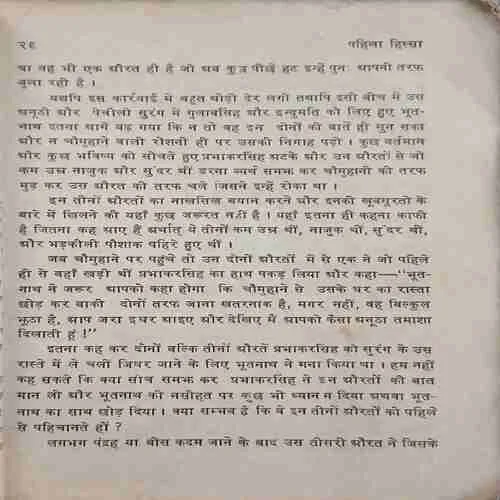 २६ पहिला हिस्सा
था वह भी एक औरत ही है जो अब कुछ पीछे हट इन्हें पुनः अपनी तरफ
बुला रही है ।
यद्यपि इस कार्रवाई में बहुत थोड़ी देर लगी तथापि इसी बीच में उस
अनूठी और पेचीली सुरंग में गुलाबसिंह और इन्दुमति को लिए हुए भूत-
नाथ इतना आगे बढ़ गया कि न तो वह इन दोनों की बातें ही सुन सका
और न चौमुहाने वाली रोशनी ही पर उसकी निगाह पड़ी । कुछ वर्तमान
और कुछ भविष्य को सोचते हुए प्रभाकरसिंह अटके और उन औरतों से जो
कम उम्र नाजुक और सुंदर थीं डरना व्यर्थ समझ कर चौमुहानी की तरफ
मुड़ कर उस औरत की तरफ चले जिसने इन्हें रोका था ।
इन तीनों औरतों का नखसिख बयान करने और इनकी खूबसूरती के
बारे में लिखने की यहाँ कुछ जरूरत नहीं है । यहाँ इतना ही कहना काफी
है जितना कह आए हैं अर्थात् ये तीनों कम उम्र थीं, नाजुक थीं, सुंदर थीं,
और भड़कीली पौशाक पहिरे हुए थीं ।
जब चौमुहाने पर पहुंचे तो उन दोनों औरतों में से एक ने जो पहिले
ही से वहाँ खड़ी थीं प्रभाकरसिंह का हाथ पकड़ लिया और कहा—"भूत-
नाथ ने जरूर आपको कहा होगा कि चौमुहाने से उसके घर का रास्ता
छोड़ कर बाकी दोनों तरफ जाना खतरनाक है, मगर नहीं, वह बिल्कुल
झूठा है, आप जरा इधर आइए और देखिए मैं आपको कैसा अनूठा तमाशा
दिखाती हूं !"
इतना कह कर दोनों बल्कि तीनों औरतें प्रभाकरसिंह को सुरंग के उस
रास्ते में ले चलीं जिधर जाने के लिए भूतनाथ ने मना किया था । हम नहीं
कह सकते कि क्या सोच समझ कर प्रभाकरसिंह ने इन औरतों की बात
मान ली और भूतनाथ की नसीहत पर कुछ भी ध्यान न दिया अथवा भूत-
नाथ का साथ छोड़ दिया । क्या सम्भव है कि वे इन तीनों औरतों को पहिले
से पहिचानते हों ?
लगभग पंद्रह या बीस कदम जाने के बाद उस तीसरी औरत ने जिसके